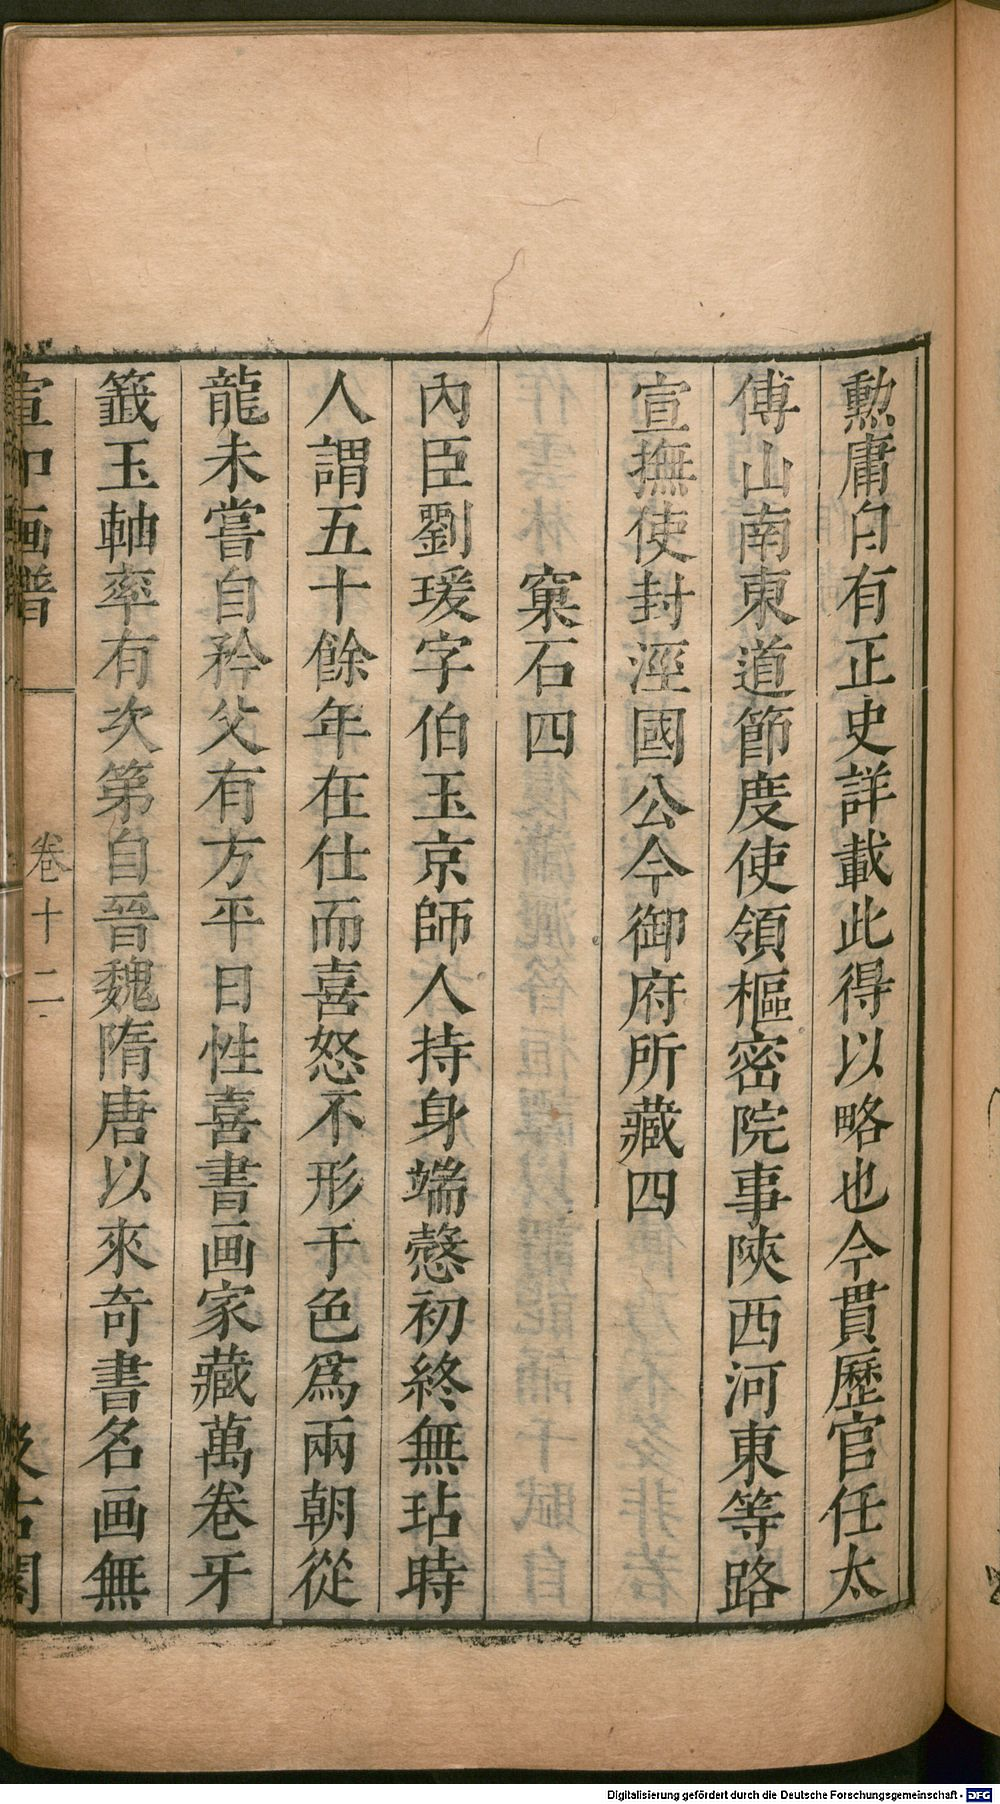 勲庸自有正史詳載此得以略也今貫歷官任太
傅山南東道節度使領樞密院事陝西河東等路
宣撫使封涇國公今御府所藏四
窠石四
內臣劉瑗字伯玉京師人持身端慤初終無玷時
人謂五十餘年在仕而喜怒不形于色爲兩朝從
龍未嘗自矜父有方平日性喜書画家藏萬卷牙
籤玉軸率有次第自晉魏隋唐以來奇書名画無
宣和画譜
卷十二
汲古閣
Digitalisierung gefördert durch die Deutsche Forschungsgemeinschaft - DFG